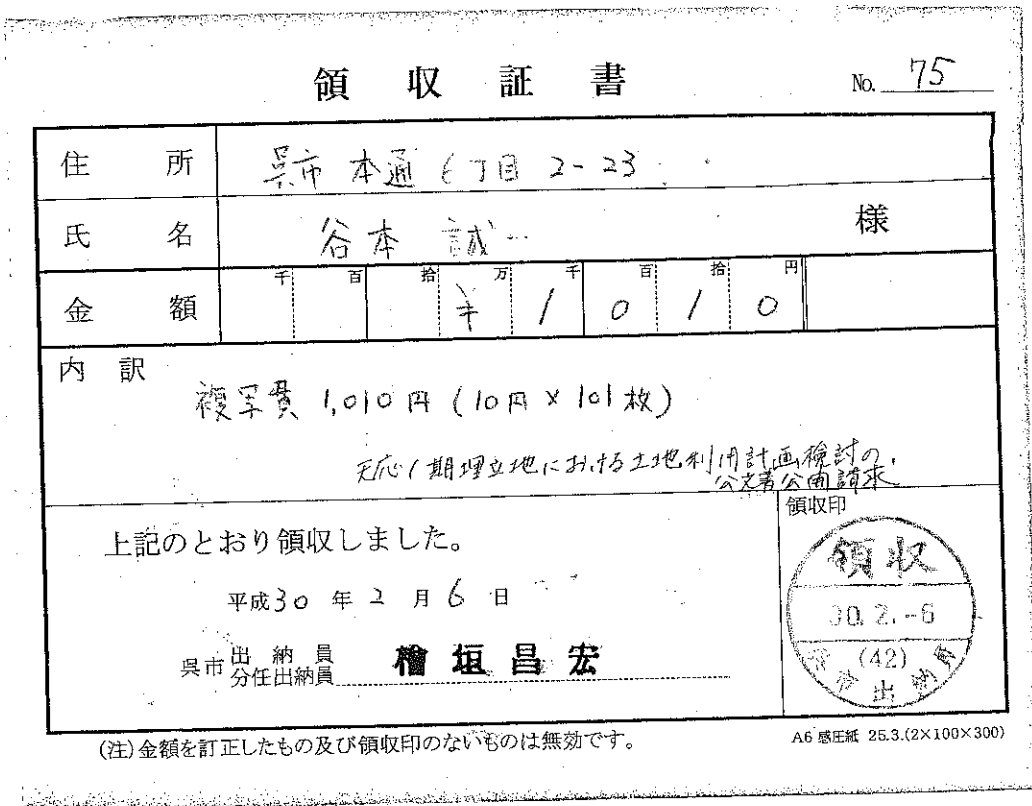 領収証書
No. 75
住所 呉市 本通 6丁目 2-23
氏名 谷本 誠 様
金額 千 百 拾 万 千 百 拾 円
¥1010
内訳
複写費 1,010円 (10円×101枚)
天応1期埋立地における土地利用計画検討の
公文書公開請求
上記のとおり領収しました。
平成30年2月6日
呉市 出納員
分任出納員 檜垣昌宏
領収印
領収
30.2.-6
(42)
出納
(注)金額を訂正したもの及び領収印のないものは無効です。
A6 感圧紙 25.3.(2×100×300)